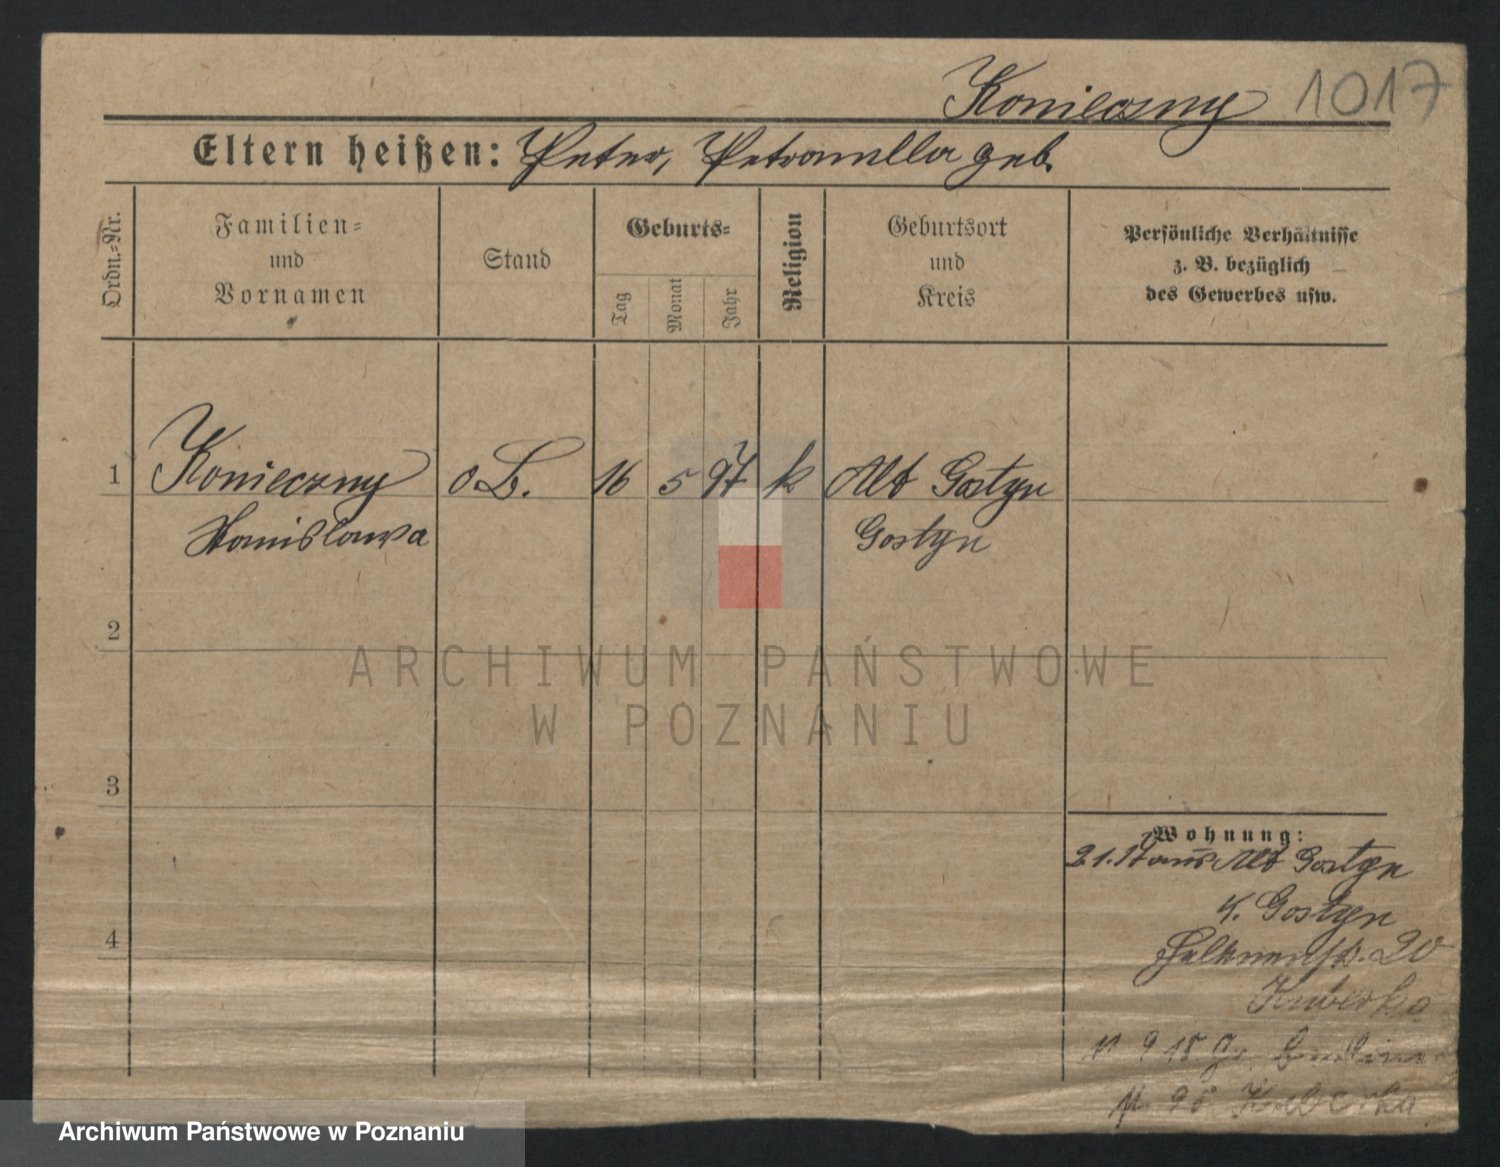 Konieczny 1017
Eltern heißen: Peter, Petronella geb.
Ordn.-Nr.
Familien-
und
Vornamen
Stand
Geburts-
Tag
Monat
Jahr
Religion
Geburtsort
und
Kreis
Persönliche Verhältnisse
z. B. bezüglich
des Gewerbes usw.
1 Konieczny o.B. 16 5 97 k Alt Gostyn
Stanislawa Gostyn
2
3
4
Wohnung:
aus Alt Gostyn
K. Gostyn
20
Kuberka
Kuberka
ARCHIWUM PAŃSTWOWE
W POZNANIU
Archiwum Państwowe w Poznaniu